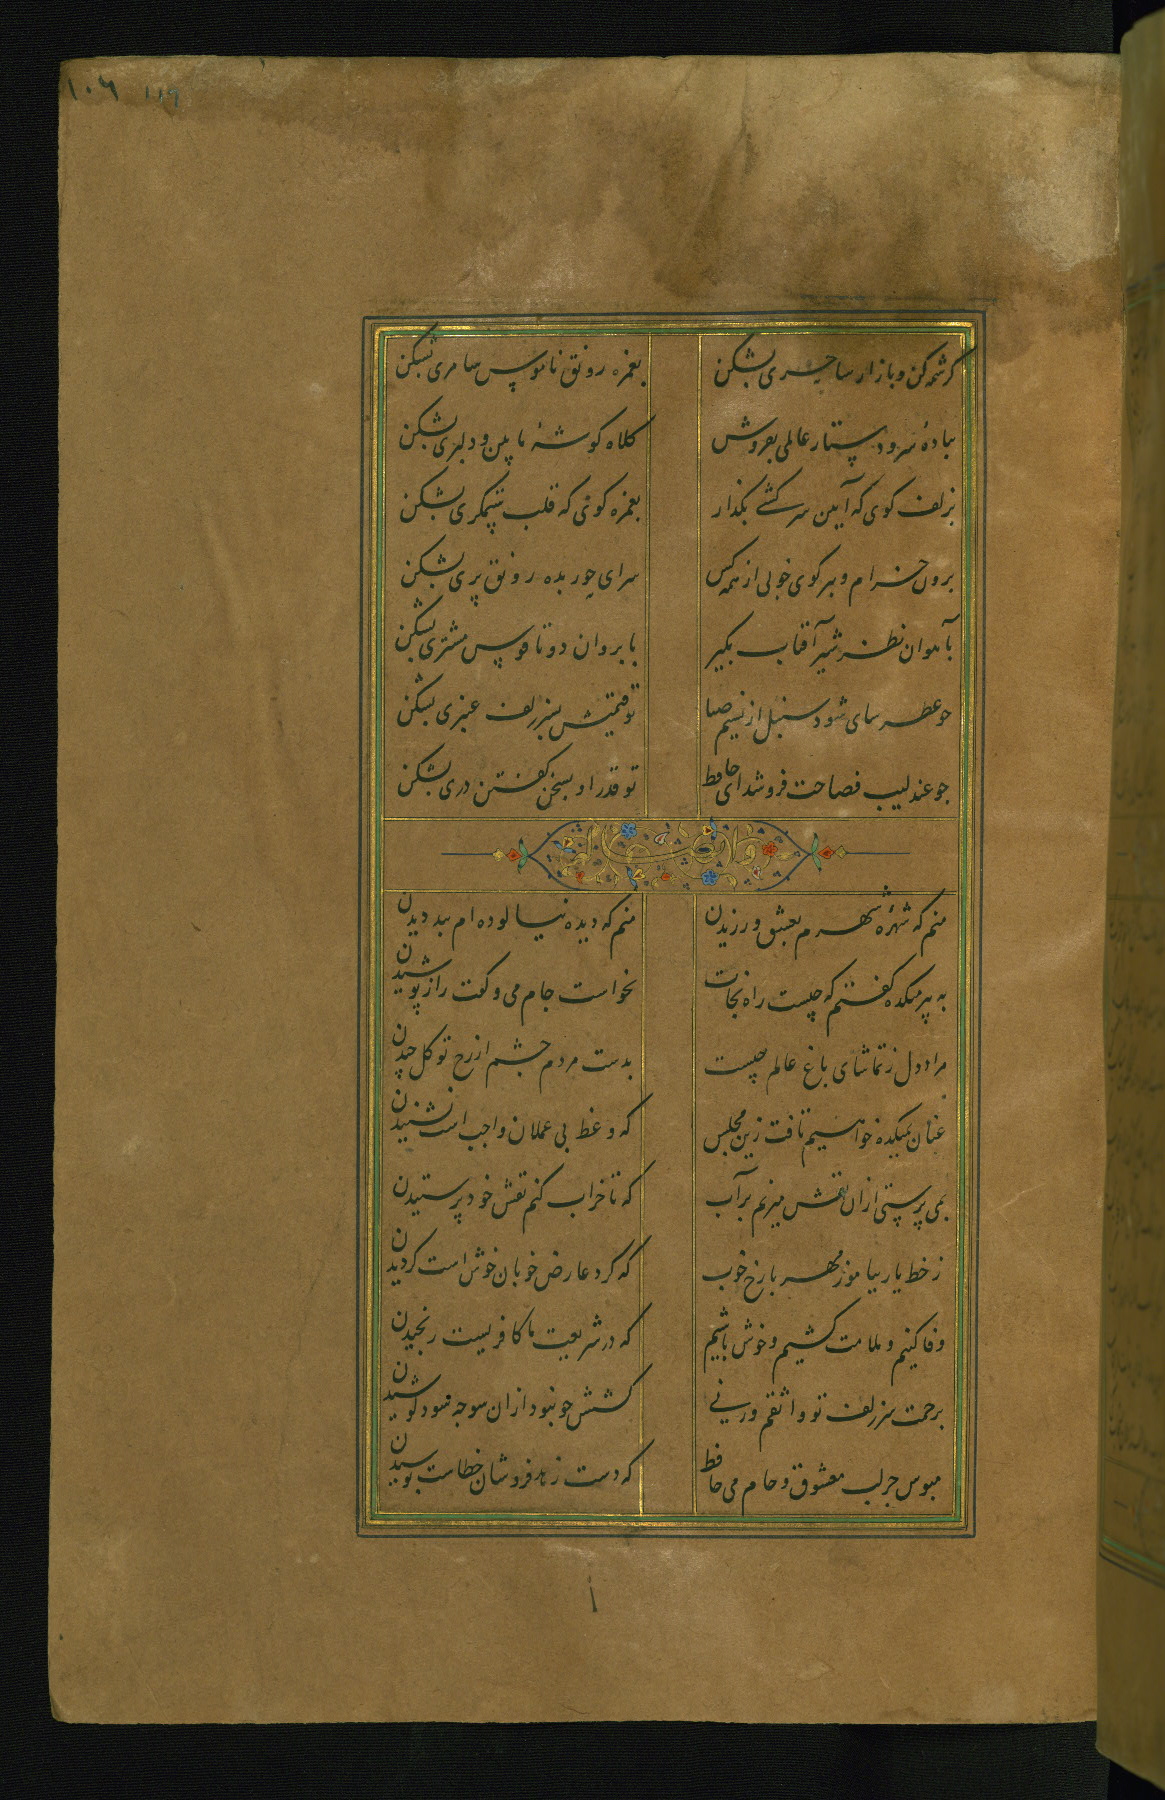 ۱۰۶ ۱۱۹
کرشمه کن و بازار ساحری بشکن
بغمزه رونق ناموس سامری بشکن
بباده سر و دستار عالمی بفروش
کلاه کوشهٔ ما بین و دلبری بشکن
بزلف کوی که آیین سرکشی بکذار
بغمزه کوی که قلب ستمکری بشکن
برون خرام و ببر کوی خوبی از همه کس
سزای حور بده رونق پری بشکن
بآهوان نظر شیر آفتاب بکیر
بابروان دوتا قوس مشتری بشکن
جو عطرسای شود سنبل از نسیم صبا
تو قیمتش بسر زلف عنبری بشکن
جو عندلیب فصاحت فروشد ای حافظ
تو قدر او بسخن کفتن دری بشکن
منم که شهرهٔ شهرم بعشق ورزیدن
منم که دیده نیالوده‌ام ببد دیدن
به پیر میکده کفتم که چیست راه نجات
بخواست جام می و کفت راز پوشیدن
مراد دل ز تماشای باغ عالم چیست
بدست مردم چشم از رخ تو کل چیدن
عنان بمیکده خواهیم تافت زین مجلس
که وعظ بی عملان واجب است نشنیدن
بمی پرستی از ان نقش میزنم بر آب
که تا خراب کنم نقش خود پرستیدن
ز خط یار بیاموز مهر با رخ خوب
که کرد عارض خوبان خوش است کردیدن
وفا کنیم و ملامت کشیم و خوش باشیم
که در شریعت ما کافریست رنجیدن
برحمت سر زلف تو واثقم ورنی
کشش جو نبود از ان سو جه سود کوشیدن
مبوس جز لب معشوق و جام می حافظ
که دست زهد فروشان خطاست بوسیدن